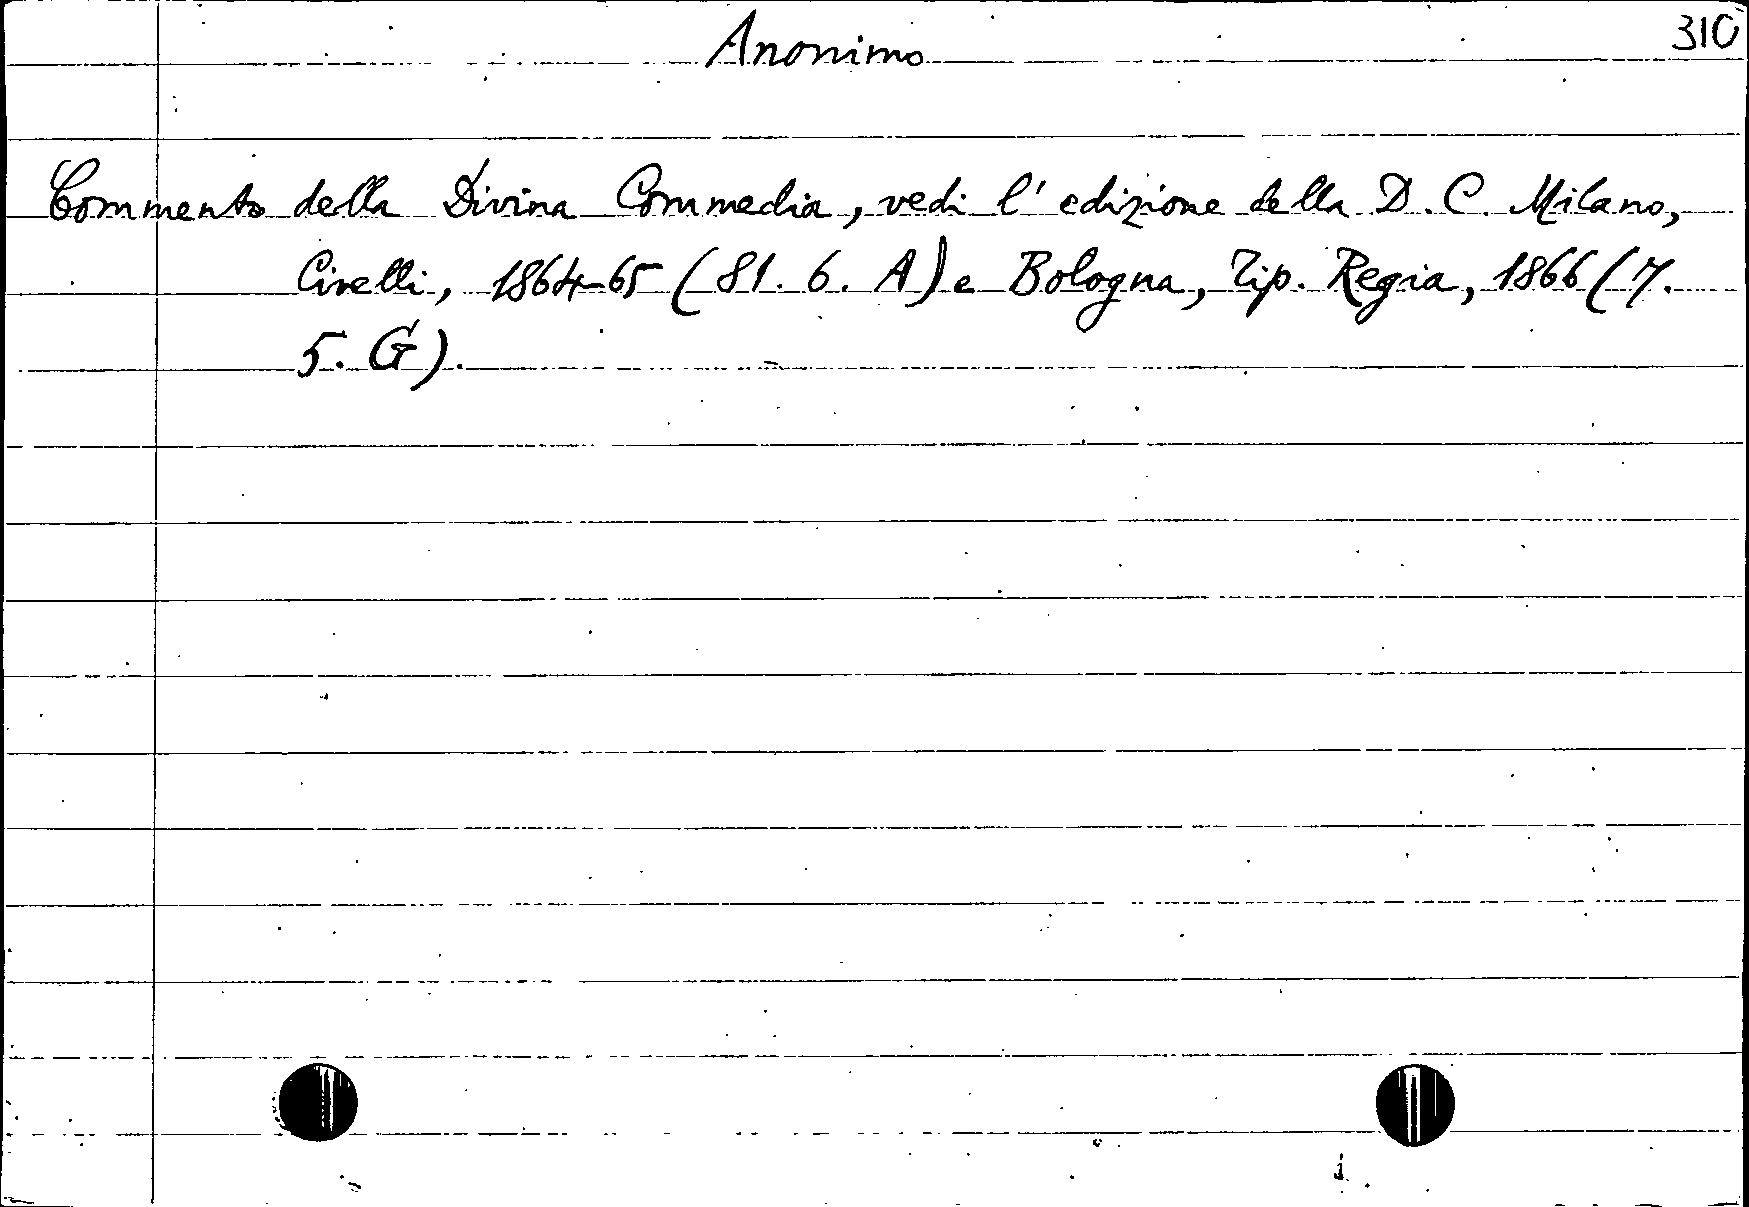 310
Anonimo
Commento della Divina Commedia, vedi l'edizione della D. C. Milano,
Civelli, 1864-65 (81. 6. A) e Bologna, Tip. Regia, 1866 (7.
5. G).